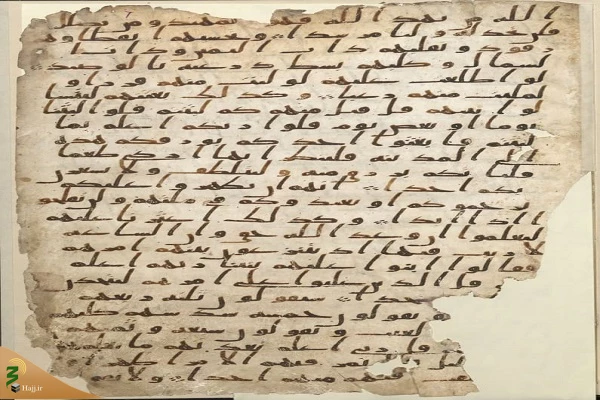 الله من يهد الله فهو المهتد ومن يضلل
فلن تجد له وليا مرشدا وتحسبهم ايقاظا وهم
رقود ونقلبهم ذات اليمين وذات ا
لشمال وكلبهم بسط ذرعيه بالوصيد
لو اطلعت عليهم لوليت منهم فرارا و
لملئت منهم رعبا وكذلك بعثنهم ليتسا
لوا بينهم قال قائل منهم كم لبثتم قالوا لبثنا
يوما او بعض يوم قالوا ربكم اعلم بما
لبثتم فابعثوا احدكم بورقكم هذه
الى المدينة فلينظر ايها ازكى طعما
فلياتكم برزق منه وليتلطف ولا يشعرن
بكم احدا انهم ان يظهروا عليكم
يرجموكم او يعيدوكم في ملتهم ولن تفلحو
ا اذا ابدا وكذلك اعثرنا عليهم
ليعلموا ان وعد الله حق وان الساعة
لا ريب فيها اذ يتنزعون بينهم امرهم
فقالوا ابنوا عليهم بنينا ربهم اعلم
قال الذين غلبوا على امرهم لنتخذن
سيقولون ثلثة رابعهم
ويقولون خمسة سدسهم كلبهم
ويقولون سبعة وثمنهم
قل ربي اعلم بعدتهم ما يعلمهم
فيهم الا مرا
فيهم منهم احدا ولا
Hajj.ir